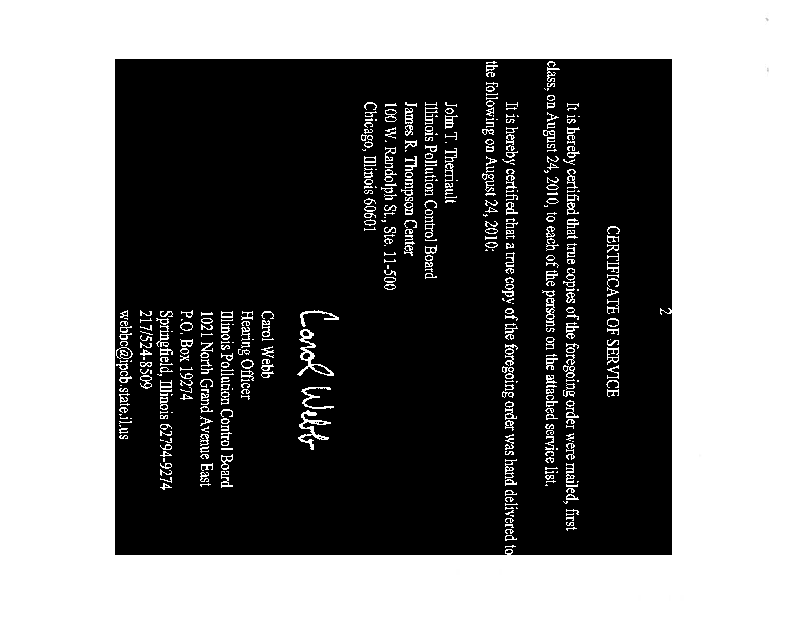 2
CERTIFICATE OF SERVICE
It is hereby certified that true copies of the foregoing order were mailed, first
class, on August 24, 2010, to each of the persons on the attached service list.
It is hereby certified that a true copy of the foregoing order was hand delivered to
the following on August 24, 2010:
John T. Therriault
Illinois Pollution Control Board
James R. Thompson Center
100 W. Randolph St., Ste. 11-500
Chicago, Illinois 60601
Carol Webb
Carol Webb
Hearing Officer
Illinois Pollution Control Board
1021 North Grand Avenue East
P.O. Box 19274
Springfield, Illinois 62794-9274
217/524-8509
webbc@ipcb.state.il.us